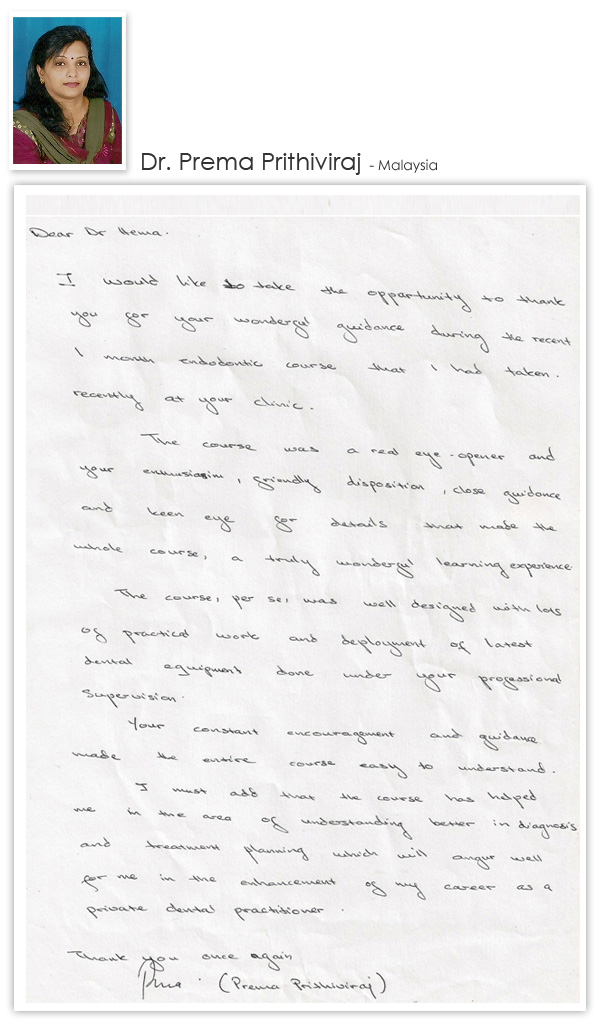 Dr. Prema Prithiviraj - Malaysia
Dear Dr Hema.
I would like to take the opportunity to thank
you for your wonderful guidance during the recent
1 month endodontic course that I had taken.
recently at your clinic.
The course was a real eye-opener and
your enthusiasim, friendly disposition, close guidance
and keen eye for details that made the
whole course, a truly wonderful learning experience
The course, per se, was well designed with lots
of practical work and deployment of latest
dental equipment done under your professional
Supervision.
Your constant encouragement and guidance
made the entire course easy to understand.
I must add that the course has helped
me in the area of understanding better in diagnosis
and treatment planning which will augur well
for me in the enhancement of my career as a
private dental practitioner.
Thank you once again
(Prema Prithiviraj)